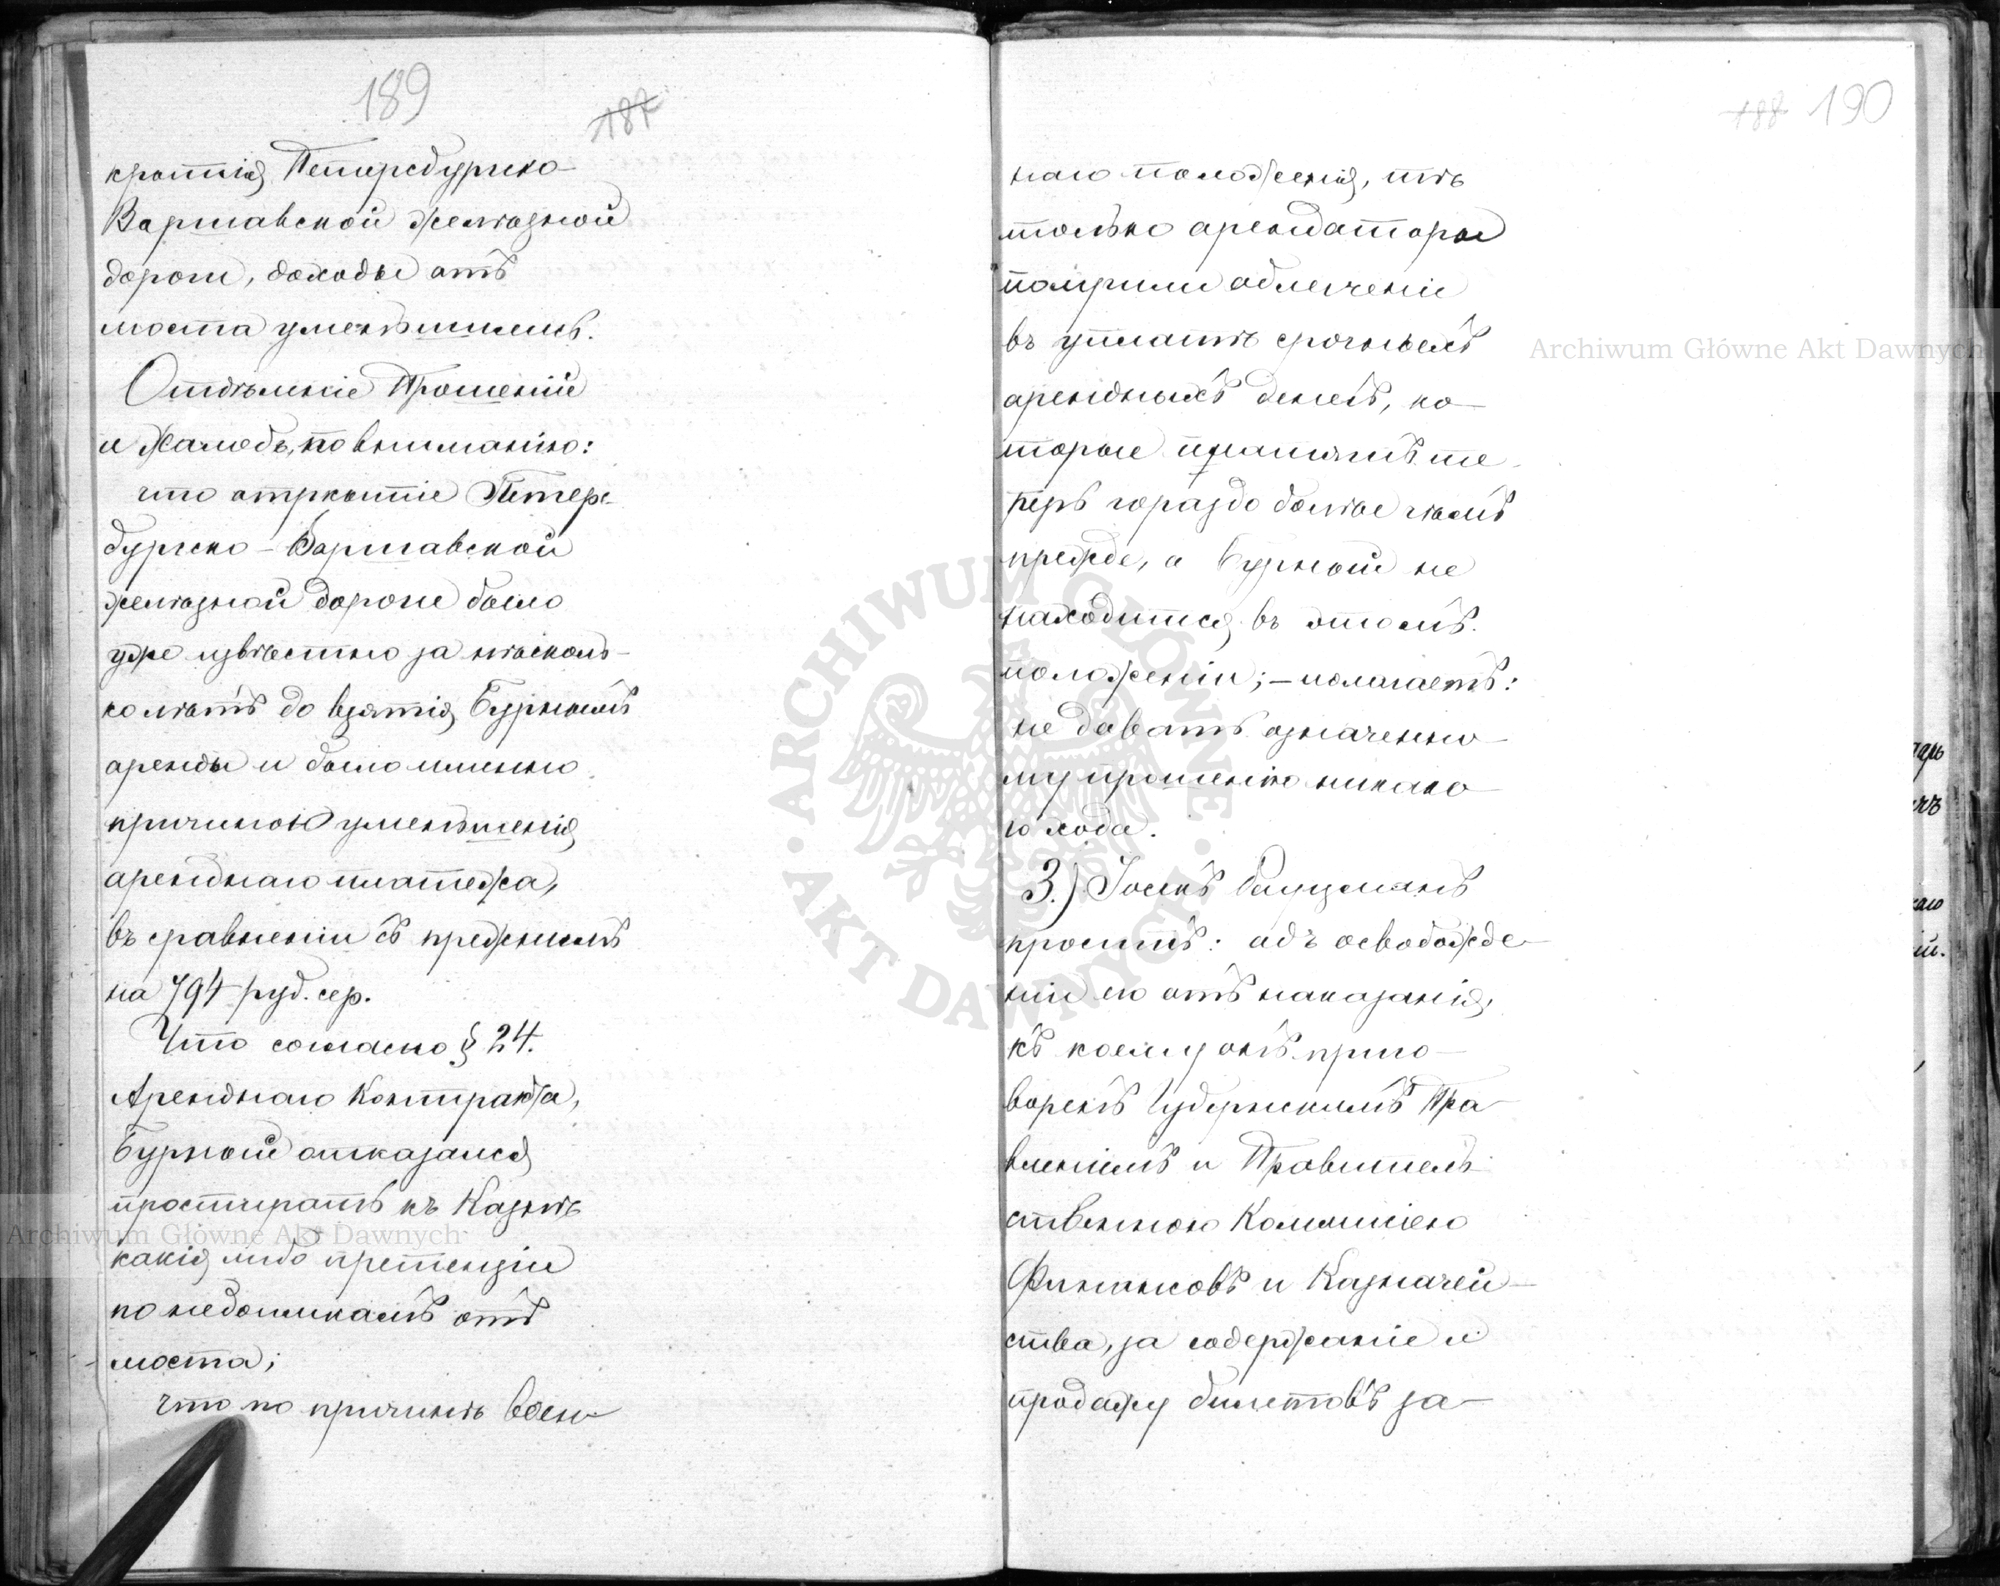 189
187
крытія Петербургско-
Варшавской желѣзной
дороги, доходы отъ
моста уменьшились.
Отдѣленіе Прошеній
и Жалобъ, по вниманію:
что открытіе Петер-
бургско-Варшавской
желѣзной дороги было
уже извѣстно за нѣсколь-
ко лѣтъ до взятія Бурнымъ
аренды и было именно
причиною уменьшенія
аренднаго платежа,
въ сравненіи съ прежнимъ
на 794 руб. сер.
Что согласно § 24.
Аренднаго Контракта,
Бурный отказался
простирать къ Казнѣ
какія либо претензіи
по недоимкамъ отъ
моста;
что по причинѣ воен-
188 190
наго положенія, тѣ
только арендаторы
получили облегченіе
въ уплатѣ срочныхъ
арендныхъ денегъ, ко-
торые платятъ те-
перь гораздо болѣе чѣмъ
прежде, а Бурный не
находится въ этомъ
положеніи; – полагаетъ:
не давать означенно-
му прошенію никако-
го хода.
3.) Іосекъ Глуцманъ
проситъ: объ освобожде-
ніи его отъ наказанія,
къ коему онъ приго-
воренъ Губернскимъ Пра-
вленіемъ и Правитель-
ственною Коммисіею
Финансовъ и Казначей-
ства, за содержаніе и
продажу билетовъ за-
Archiwum Główne Akt Dawnych
Archiwum Główne Akt Dawnych
ARCHIWUM GŁÓWNE · AKT DAWNYCH ·